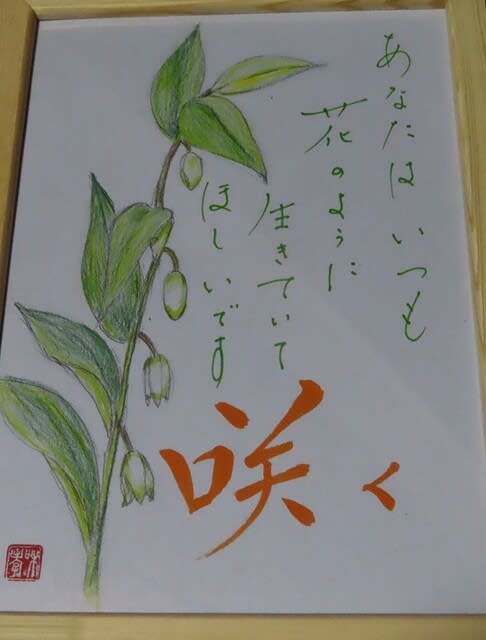 あなたはいつも
花のように
生きていて
ほしいです
咲く